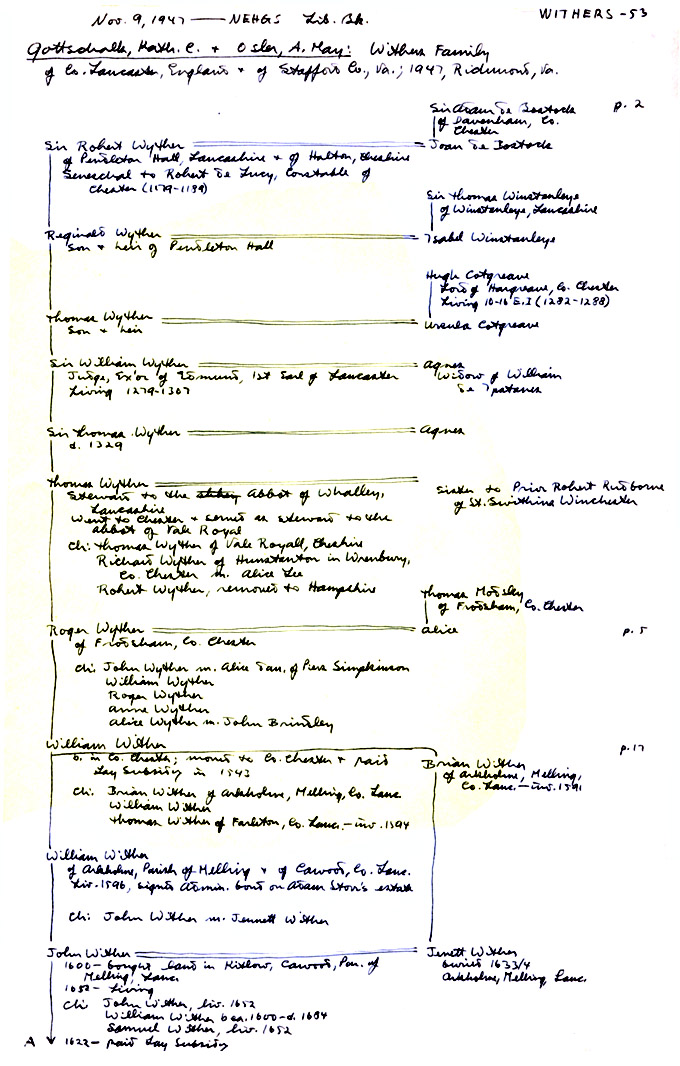 Nov. 9, 1947 — NEHGS Lib. Bk.
WITHERS - 53
Gottschalk, Kath. C. + Osler, A. May: Withers Family
of Co. Lancaster, England + of Stafford Co., Va.; 1947, Richmond, Va.
Sir Adam de Bostock p. 2
of Davenham, Co.
Chester
Sir Robert Wyther Joan de Bostock
of Pendleton Hall, Lancashire + of Halton, Cheshire
Seneschal to Robert de Lucy, Constable of
Chester (1179-1189)
Sir Thomas Winstanleye
of Winstanleye, Lancashire
Reginald Wyther Isabel Winstanleye
Son + heir of Pendleton Hall
Hugh Cotgreave
Lord of Hargreave, Co. Chester
Living 10-16 E.I (1282-1288)
Thomas Wyther Ursula Cotgreave
Son + heir
Sir William Wyther Agnes
Judge, Ex'or of Edmund, 1st Earl of Lancaster Widow of William
Living 1279-1307 de Ipatanes
Sir Thomas Wyther Agnes
d. 1329
Thomas Wyther Sister to Prior Robert Rudborne
Steward to the Abbot of Whalley, of St. Swithins Winchester
Lancashire
Went to Chester + served as steward to the
Abbot of Vale Royal
Ch: Thomas Wyther of Vale Royall, Cheshire
Richard Wyther of Hunstanton in Wrenbury,
Co. Chester m. Alice Lee
Robert Wyther, removed to Hampshire
Thomas Modsley
of Frodsham, Co. Chester
Roger Wyther Alice p. 5
of Frodsham, Co. Chester
Ch: John Wyther m. Alice dau. of Piers Simpkinson
William Wyther
Roger Wyther
Anne Wyther
Alice Wyther m. John Brindley
William Wither p. 17
b. in Co. Chester; moved to Co. Chester + paid
Lay Subsidy in 1543
Brian Wither
of Arkholme, Melling,
Co. Lanc. — inv. 1591
Ch: Brian Wither of Arkholme, Melling, Co. Lanc.
William Wither
Thomas Wither of Farleton, Co. Lanc. — inv. 1594
William Wither
of Arkholme, Parish of Melling + of Cawood, Co. Lanc.
Liv. 1596, signs Admin. bond on Adam Storr's estate
Ch: John Wither m. Jennett Wither
John Wither Jenett Wither
1600 - bought land in Kitlow, Cawood, Par. of buried 1633/4
Melling, Lanc. Arkholme, Melling, Lanc.
1652 - Living
Ch: John Wither, liv. 1652
William Wither b ca. 1600 - d. 1684
Samuel Wither, liv. 1652
A 1622 - paid Lay Subsidy